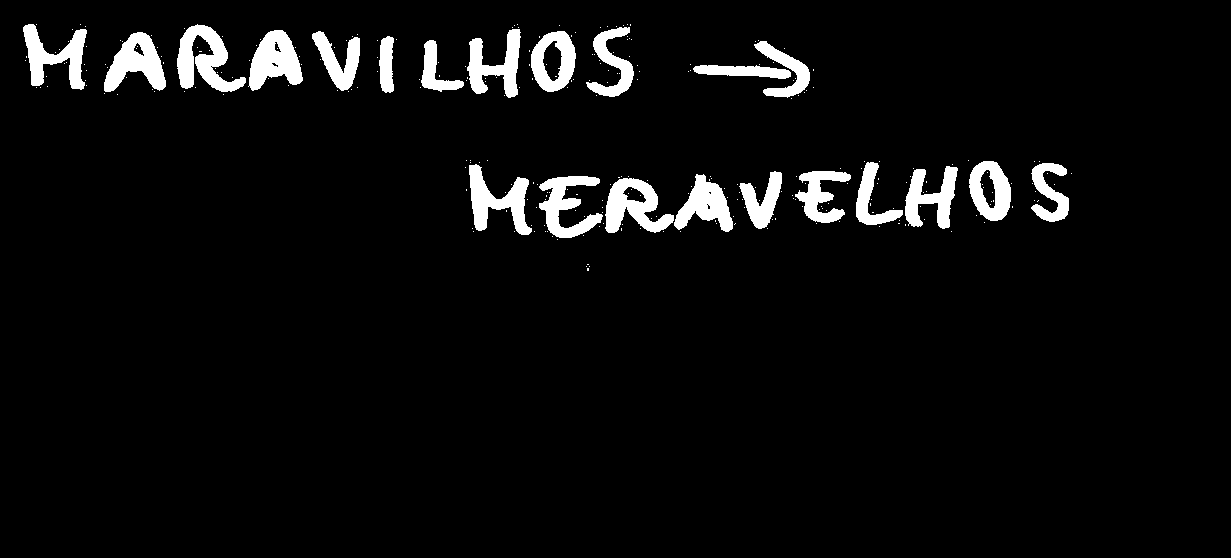 MARAVILHOS →
MERAVELHOS